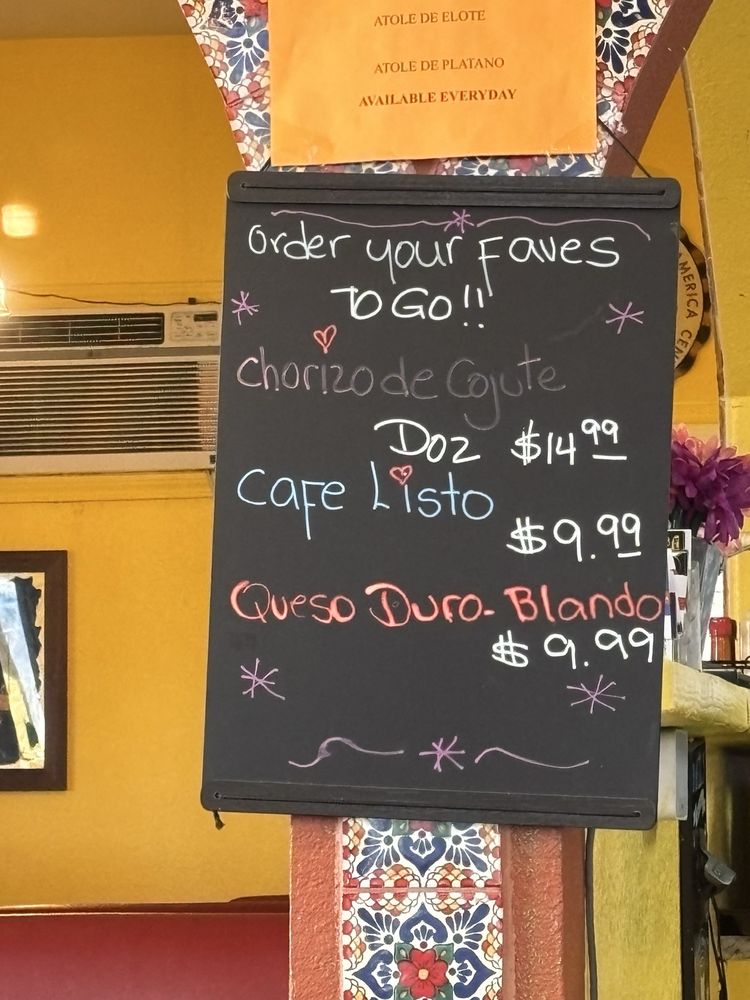 ATOLE DE ELOTE
ATOLE DE PLATANO
AVAILABLE EVERYDAY
Order your Faves
To Go!!
Chorizo de Cojute
Doz $14.99
Cafe Listo
$9.99
Queso Duro-Blando
$9.99
AMERICA CEN